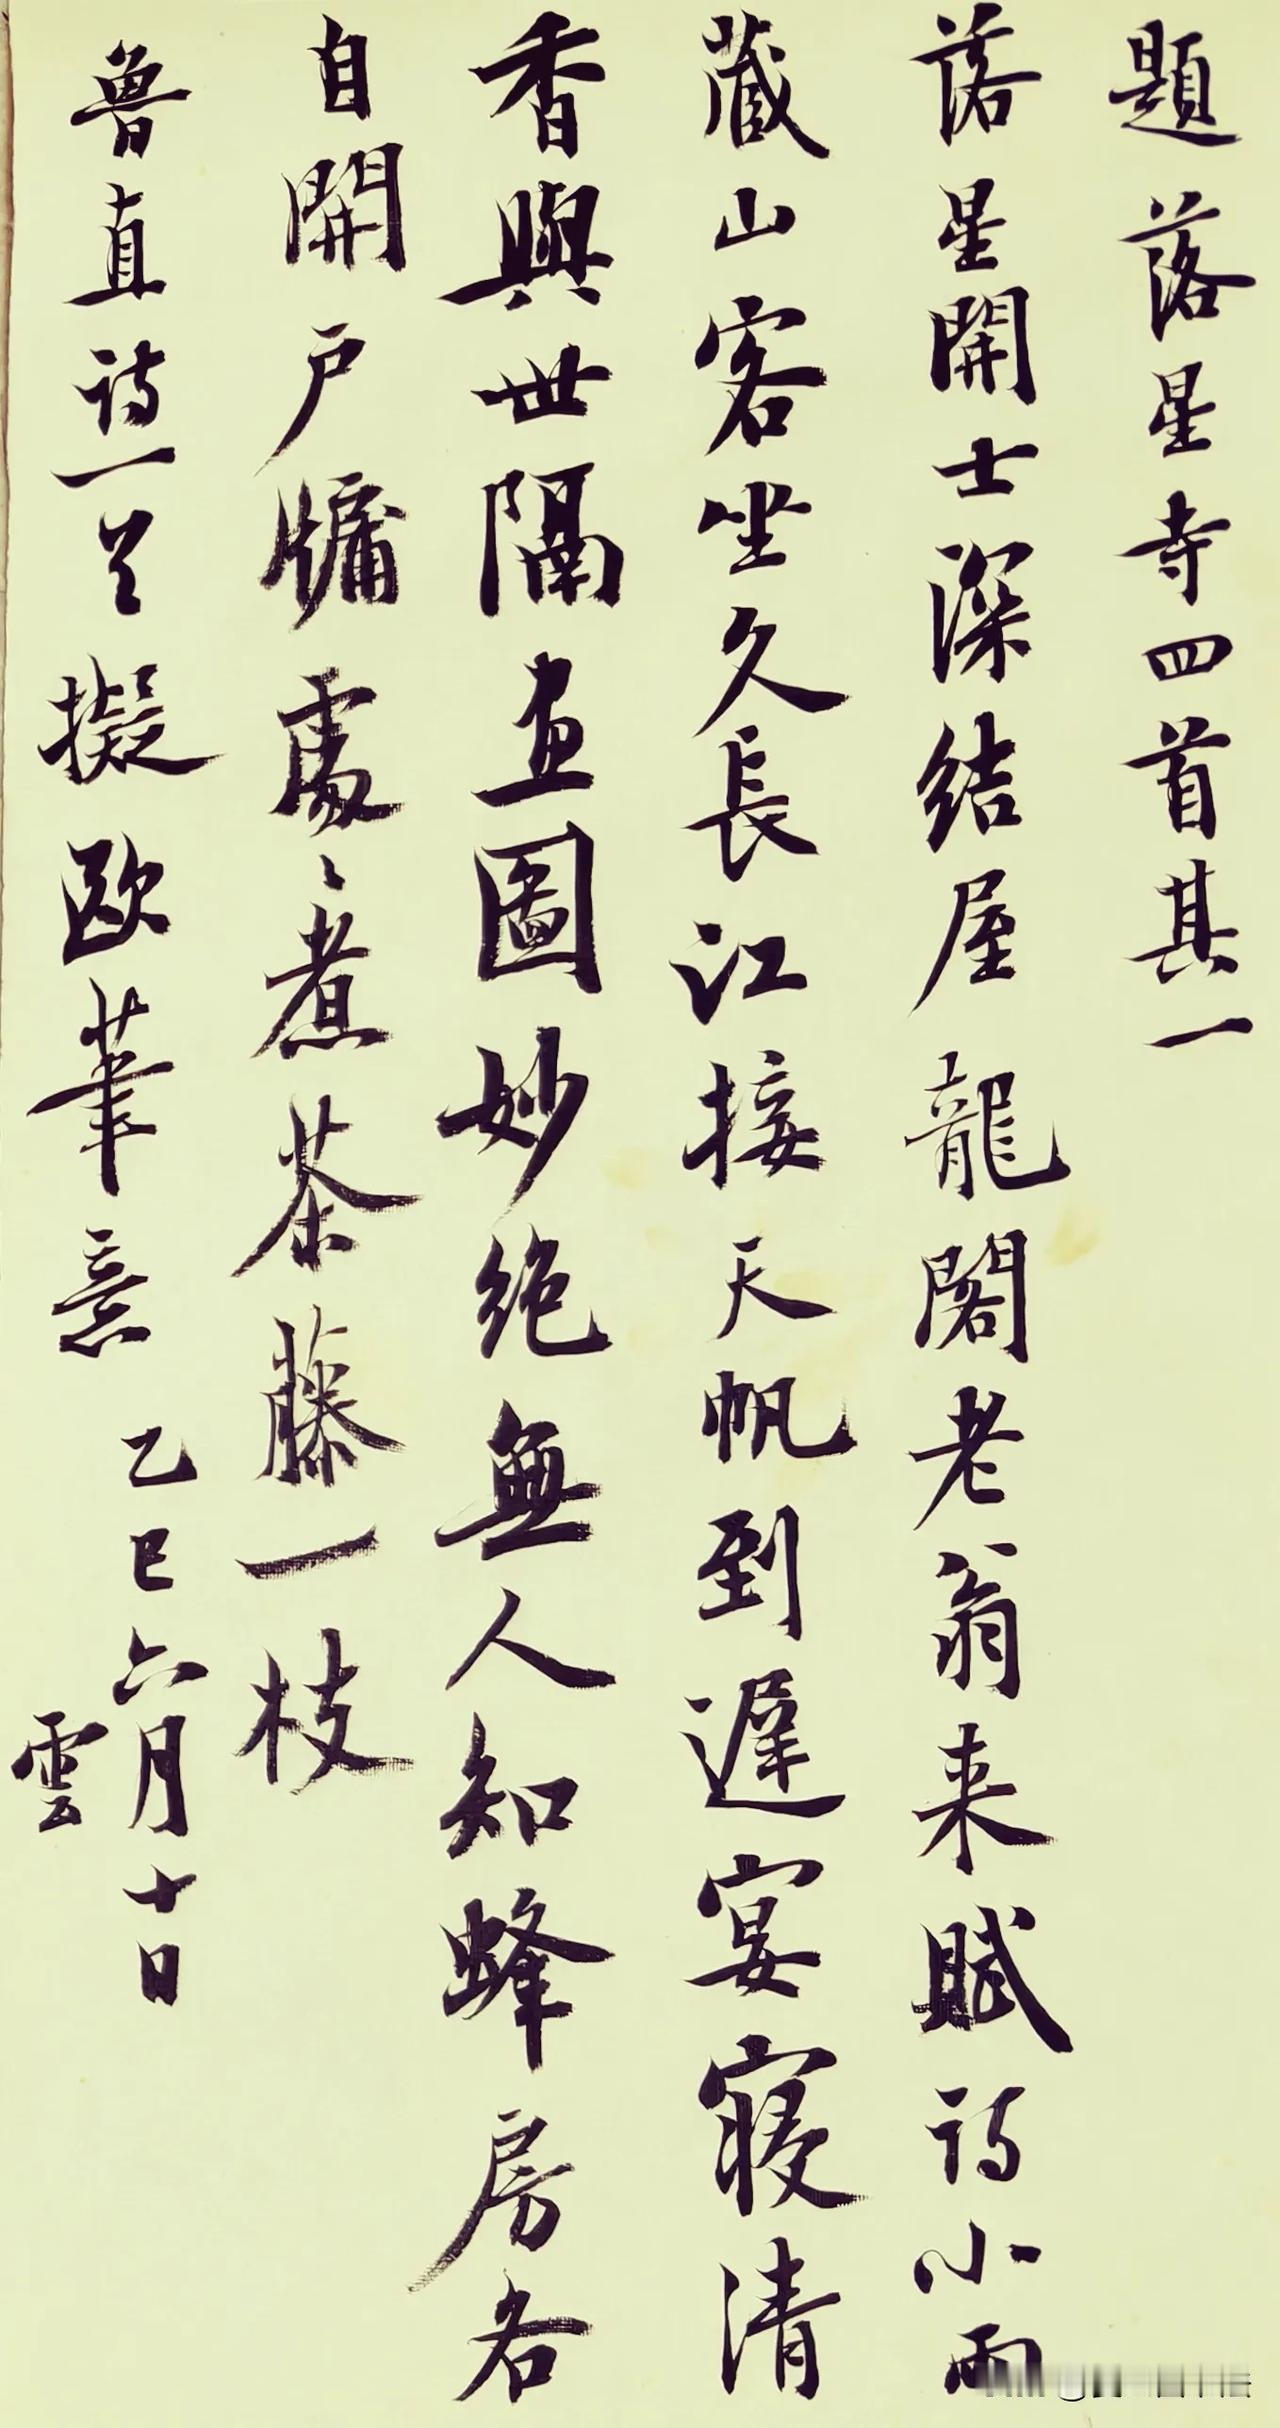 題落星寺四首其一
落星開士深結屋龍閣老翁来賦詩小雨
藏山客坐久長江接天帆到遲宴寝清
香與世隔畫圖妙絶無人知蜂房各
自開户牖處〻煮茶藤一枝
魯直詩一首擬欧筆意
乙巳六月十日
雲